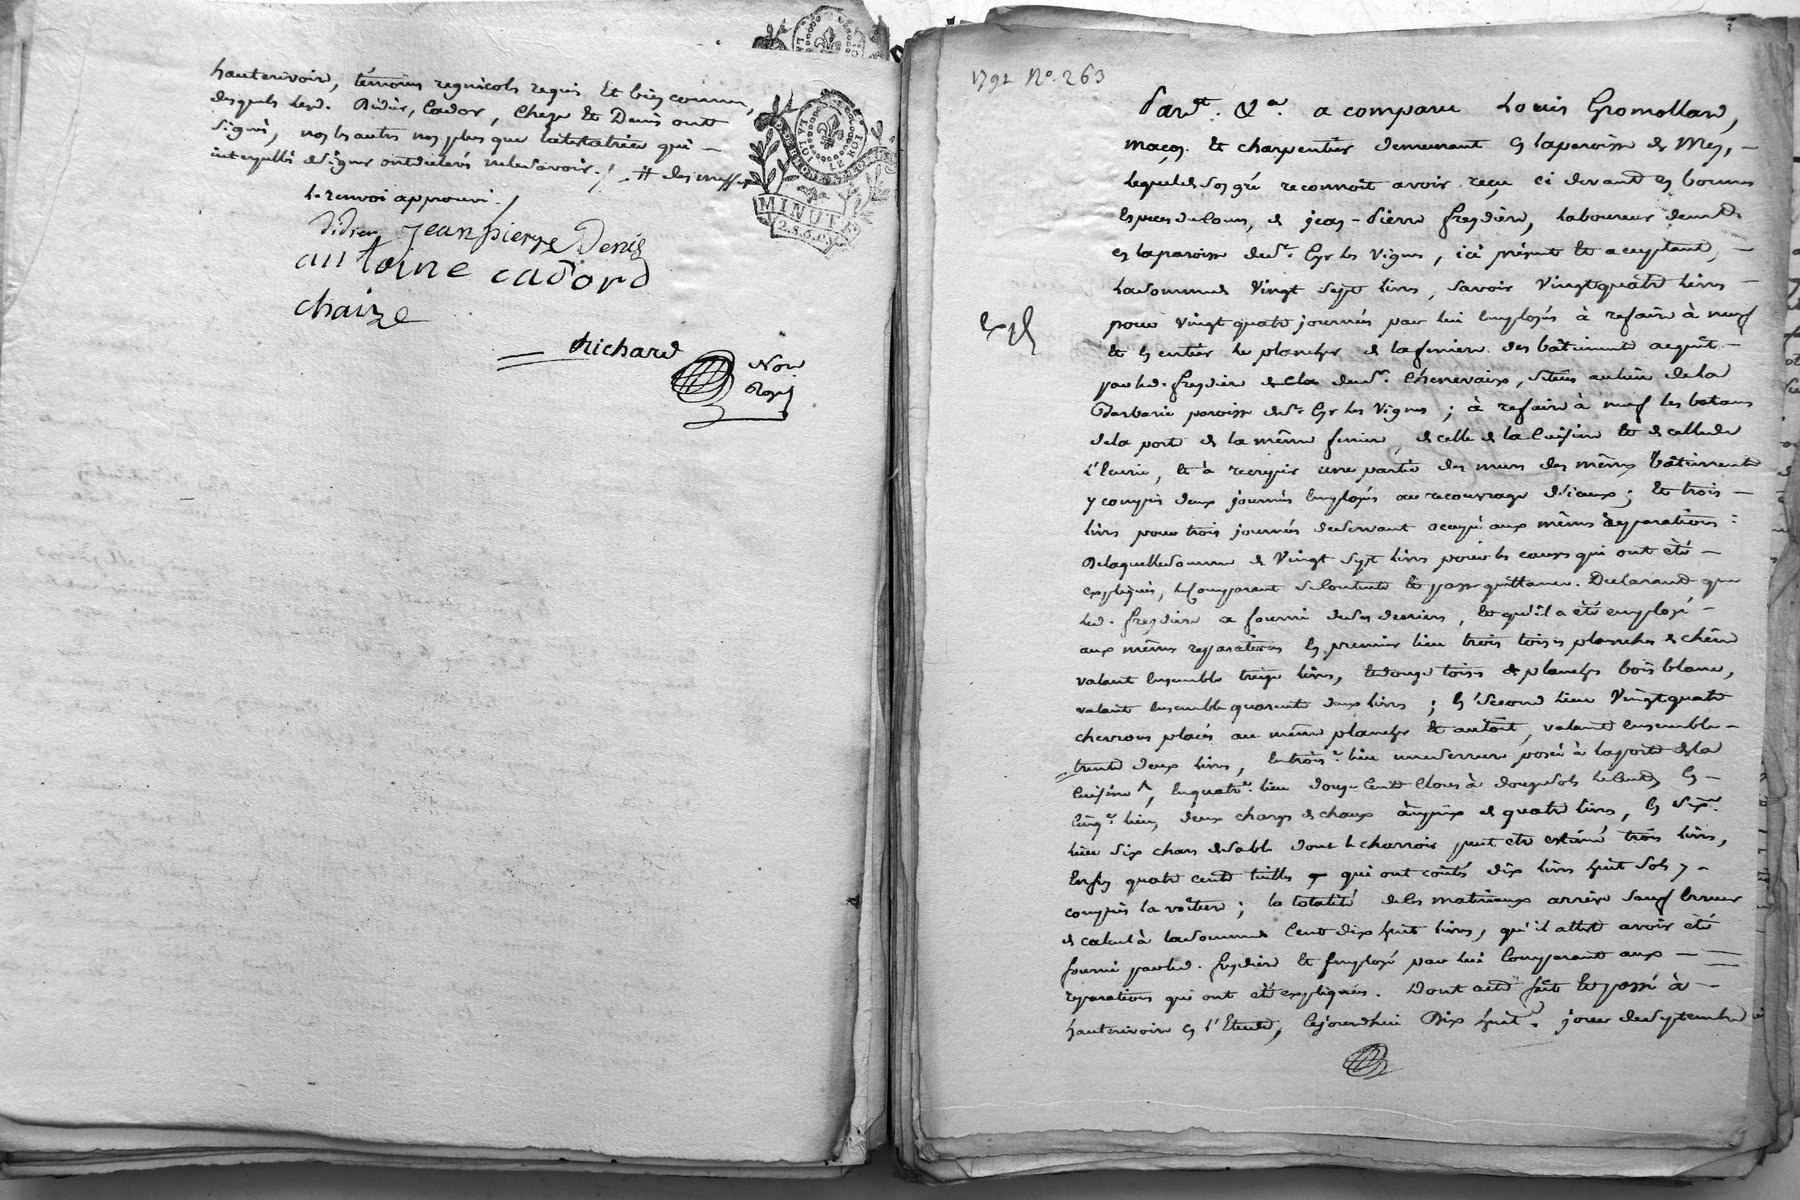 hauterivoire, témoins regnicols requis et bien connus,
desquels lesd. Didier, Cador, Cheze et Denis ont
signé, non les autres non plus que la testatrice qui —
interpellés de signer ont déclaré ne le savoir ./.
le renvoi approuvé.
didier jean pierre Denis
antoine cadord
chaize
Richard
Nore
Royal
LA LOI LE ROI
MINUTE
2.S.6.DS
1791 No. 263
Pard.t &.a a comparu Louis Gromollard,
maçon et charpentier demeurant en la paroisse de Mey, —
lequel de son gré reconnoit avoir reçu ci devant en bonnes
especes de cours, de jean-Pierre freydiere, laboureur demt.
en la paroisse de St. Cyr les Vignes, ici présent et acceptant, —
la somme de vingt sept livres, savoir vingt quatre livres —
pour vingt quatre journées par lui employés à refaire à neuf
et en entier le plancher de la feniere des bâtiments acquit —
par led. freydiere de Cla de St. Chenevaix, situés au lieu de la
Barbarie paroisse de St. Cyr les Vignes ; à refaire à neuf les batans
de la porte de la même feniere, de celle de la Cuisine et de celle de
l'Ecurie, et à recrepir une partie des murs des mêmes bâtiments
y compris deux journées employés au recouvrage d'iceux ; et trois —
livres pour trois journées de servant occupé aux mêmes réparations :
De laquelle somme de vingt sept livres pour les causes qui ont été —
expliquées, le Comparant se contente et passe quittance. Declarant que
led. freydiere a fourni de ses deniers, et qu'il a été employé —
aux mêmes reparations en premier lieu trois toises planches de chêne
valant ensemble treize livres, et douze toises de planches bois blanc,
valant ensemble quarente deux livres ; en second lieu vingt quatre
chevrons placés au même plancher et au toit, valant ensemble —
trente deux livres, en trois.e lieu une serrure posée à la porte de la
Cuisine, en quatr.e lieu douze cents clous à douze sols le Cent, en —
cinq.e lieu, deux charges de chaux au prix de quatre livres, en six.e
lieu six chars de sable dont le charroir peut etre estimé trois livres,
Enfin quatre cents tuilles qui ont coutés dix livres huit sols y —
compris la voiture ; la totalité de ces matériaux arrive sauf erreur
de calcul à la somme de Cent dix huit livres, qu'il atteste avoir été
fourni par led. freydiere et employé par lui Comparant aux —
reparations qui ont été expliquées. Dont acte fait et passé à —
hauterivoire en l'Etude, cejourdhui Dix huit.e jour de septembre